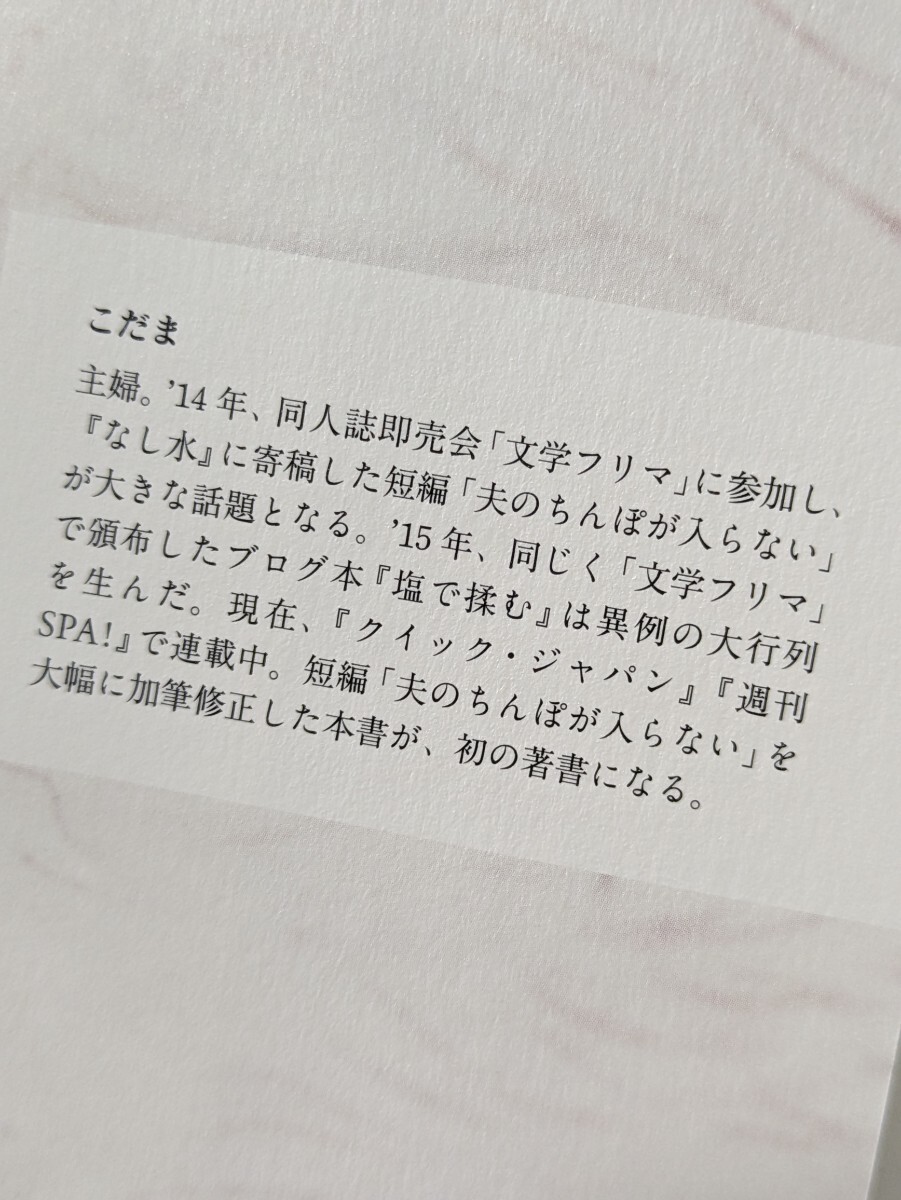 こだま
主婦。’14年、同人誌即売会「文学フリマ」に参加し、
『なし水』に寄稿した短編「夫のちんぽが入らない」
が大きな話題となる。’15年、同じく「文学フリマ」
で頒布したブログ本『塩で揉む』は異例の大行列
を生んだ。現在、『クイック・ジャパン』『週刊
SPA!』で連載中。短編「夫のちんぽが入らない」を
大幅に加筆修正した本書が、初の著書になる。